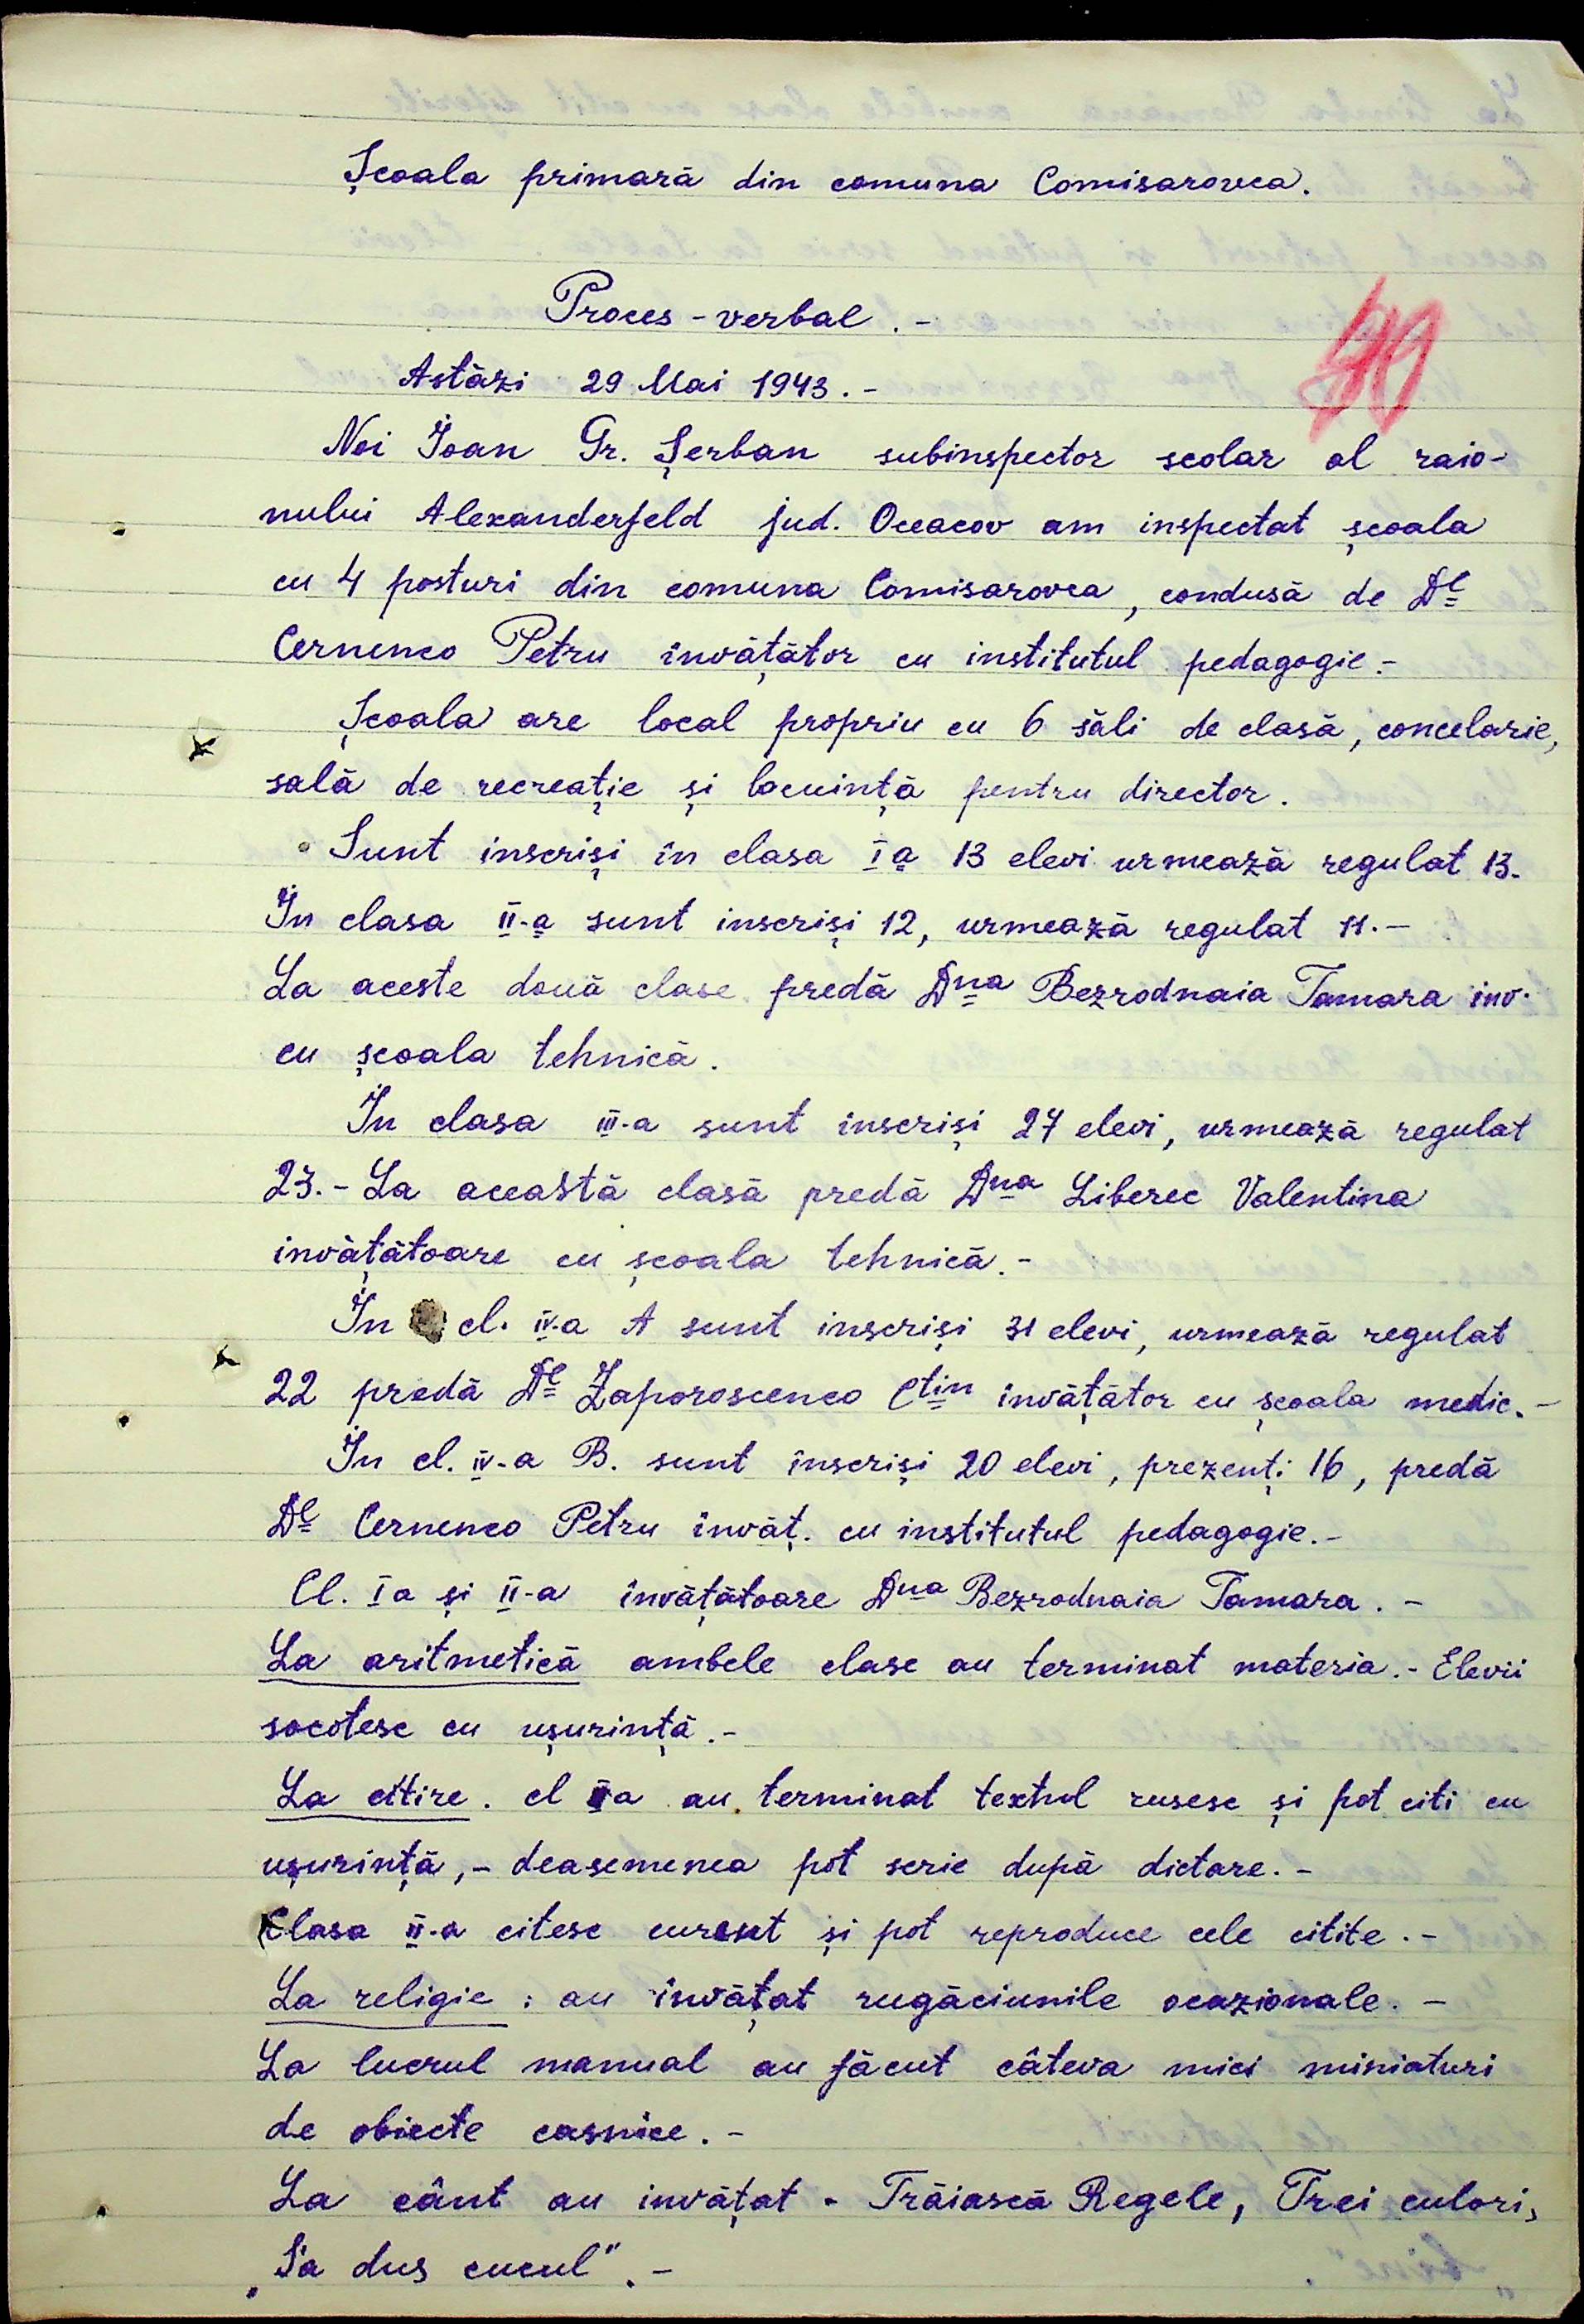 Școala primară din comuna Comisarovca.
Proces-verbal.-
Astăzi 29 Mai 1943.-
Noi Ioan Gr. Șerban subinspector scolar al raio-
nului Alexanderfeld jud. Oceacov am inspectat școala
cu 4 posturi din comuna Comisarovca, condusă de Dl
Cernenco Petru învățător cu institutul pedagogic.-
Școala are local propriu cu 6 săli de clasă, concelarie,
sală de recreație și locuință pentru director.
Sunt inscriși în clasa Ia 13 elevi urmează regulat 13.
În clasa II-a sunt inscriși 12, urmează regulat 11.-
La aceste două clase predă Dna Bezrodnaia Tamara inv.
cu școala tehnică.
În clasa III-a sunt inscriși 27 elevi, urmează regulat
23.- La această clasă predă Dna Liberec Valentina
invățătoare cu școala tehnică.-
În cl. IV-a A sunt inscriși 31 elevi, urmează regulat
22 predă Dl Zaporoscenco Ctin învățător cu școala medic.-
În cl. IV-a B. sunt înscriși 20 elevi, prezenți 16, predă
Dl Cernenco Petru învăț. cu institutul pedagogic.-
Cl. Ia și II-a învățătoare Dna Bezrodnaia Tamara.-
La aritmetică ambele clase au terminat materia.- Elevii
socotesc cu ușurință.-
La citire. cl Ia au terminat textul rusesc și pot citi cu
ușurință,- deasemenea pot scrie după dictare.-
Clasa II-a citesc curent și pot reproduce cele citite.-
La religie: au învățat rugăciunile ocazionale.-
La lucrul manual au făcut câteva mici miniaturi
de obiecte casnice.-
La cânt au invățat - Trăiască Regele, Trei culori,
„S'a dus cucul".-